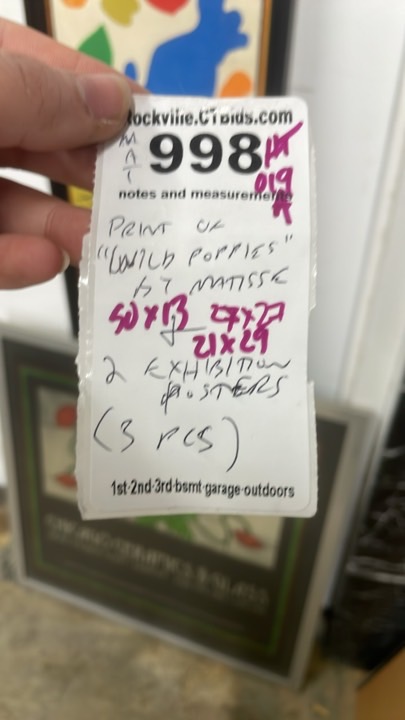 Rockville.CTBids.com
MAT
998
019
notes and measurements
PRINT OF
"WILD POPPIES"
BY MATISSE
50 x 13 27 x 27
21 x 29
2 EXHIBITION
POSTERS
(3 PCS)
1st-2nd-3rd-bsmt-garage-outdoors